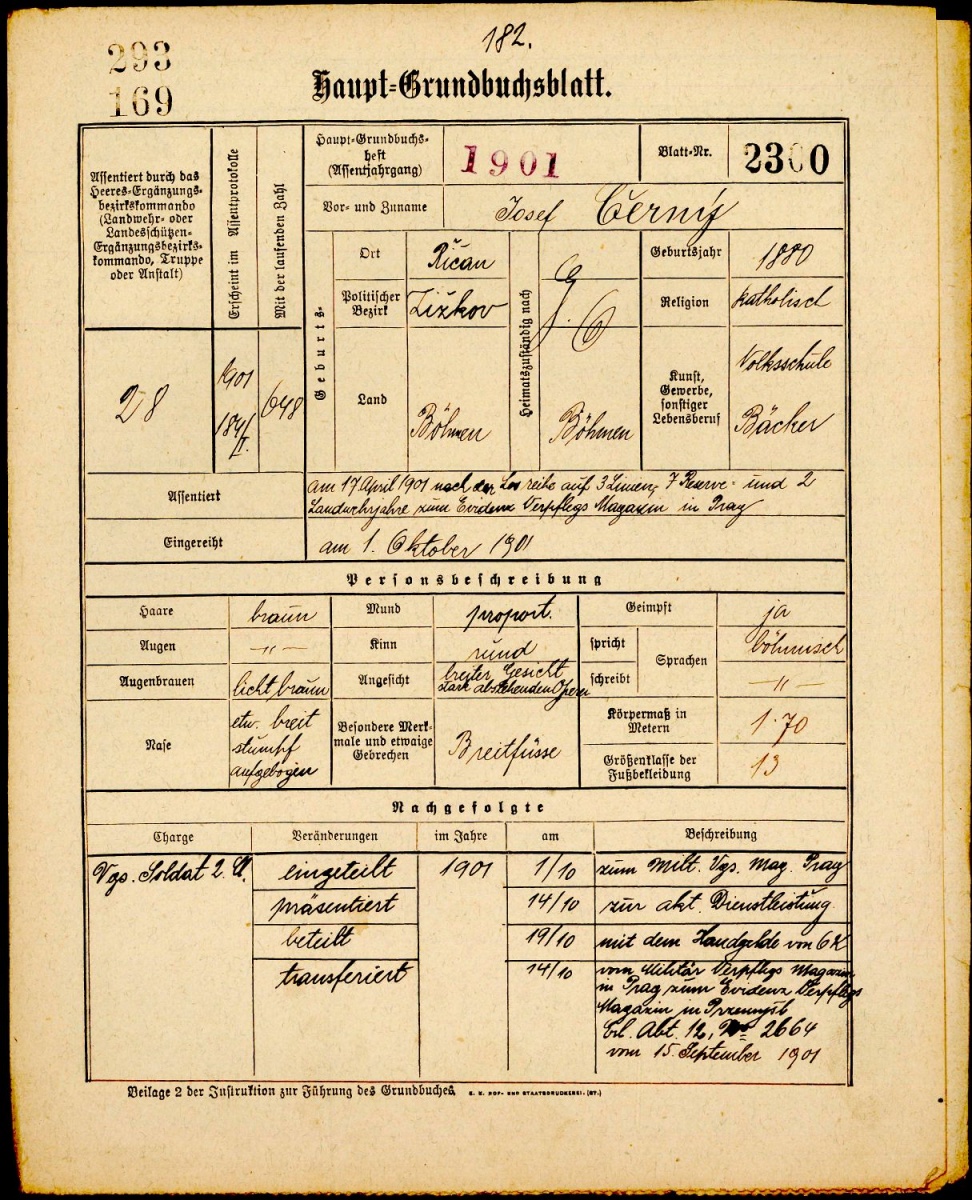 182.
293
169
Haupt=Grundbuchsblatt.
Assentiert durch das
Heeres-Ergänzungs-
bezirkskommando
(Landwehr- oder
Landesschützen-
Ergänzungsbezirks-
kommando, Truppe
oder Anstalt)
Erscheint im Assentprotokolle
Mit der laufenden Zahl
Haupt-Grundbuchs-
heft
(Assentjahrgang)
1901
Blatt-Nr.
2300
Vor- und Zuname
Josef Černý
Geburts-
Ort
Řičan
Politischer
Bezirk
Žižkov
Land
Böhmen
Heimatszuständig nach
Böhmen
Geburtsjahr
1880
Religion
katholisch
Kunst,
Gewerbe,
sonstiger
Lebensberuf
Volksschule
Bäcker
28
1901
648
Assentiert
am 17 April 1901 nach der Los reihe auf 3 Linien, 7 Reserve- und 2
Landwehrjahre zum Evidenz Verpflegs Magazin in Prag
Eingereiht
am 1. Oktober 1901
Personsbeschreibung
Haare
braun
Mund
proport.
Geimpft
ja
Augen
-"-
Kinn
rund
spricht
Sprachen
böhmisch
Augenbrauen
licht braun
Angesicht
breiter Gesicht
stark abstehenden Ohren
schreibt
-"-
Nase
etw. breit
stumpf
aufgebogen
Besondere Merk-
male und etwaige
Gebrechen
Breitfüsse
Körpermaß in
Metern
1·70
Größenklasse der
Fußbekleidung
13
Nachgefolgte
Charge
Veränderungen
im Jahre
am
Beschreibung
Vgs. Soldat 2. Cl.
eingeteilt
1901
1/10
zum Milt. Vgs. Mag. Prag
präsentiert
14/10
zur akt. Dienstleistung
beteilt
19/10
mit dem Handgelde von 6 K
transferiert
14/10
vom Militär Verpflegs Magazin
in Prag zum Evidenz Verpflegs
Magazin in Przemyśl
Erl. Abt. 12, No 2664
vom 15. September 1901
Beilage 2 der Instruktion zur Führung des Grundbuches.
K. K. HOF- UND STAATSDRUCKEREI. (07.)